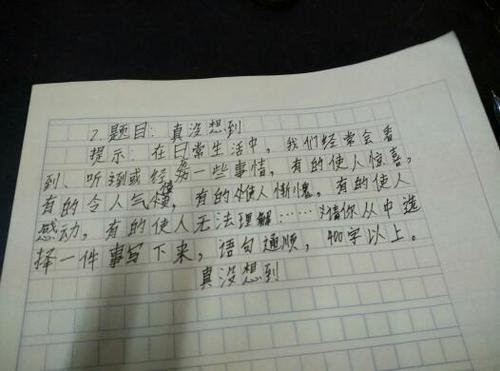 2.题目:真没想到
提示:在日常生活中,我们经常会看
到、听到或经历一些事情,有的使人惊喜,
有的令人气愤,有的使人惭愧,有的使人
感动,有的使人无法理解……请你从中选
择一件事写下来,语句通顺,400字以上。
真没想到